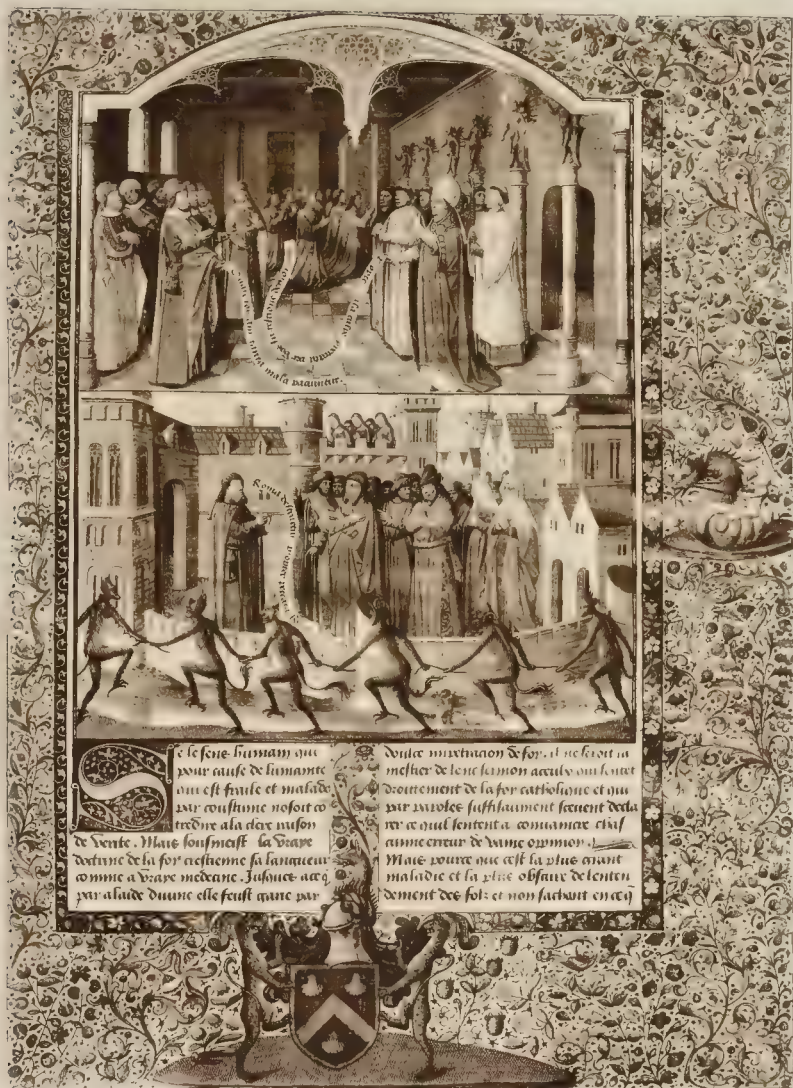 mala
Roma
Se le sens humain qui
pour cause de lumanite
qui est fraile et malade
par coustume nosoit co
tredire a la clere raison
de verite. Mais sousmeist la vraye
doctrine de la foy crestienne sa langueur
comme a vraye medecine. Jusques a ce q̄
par alaide divine elle feust garie par
doulce impetracion de foy. il ne seroit ia
mestier de sermon a ceulx qui sentent
droittement de la foy catholique et qui
par paroles suffisaument scevent decla
rer ce quil sentent a convaincre chas
cunne erreur de vaine oppinion.
Mais pource que cest la plus
maladie et la plus obscure de lenten
dement des folz et non sachant en ce q̄